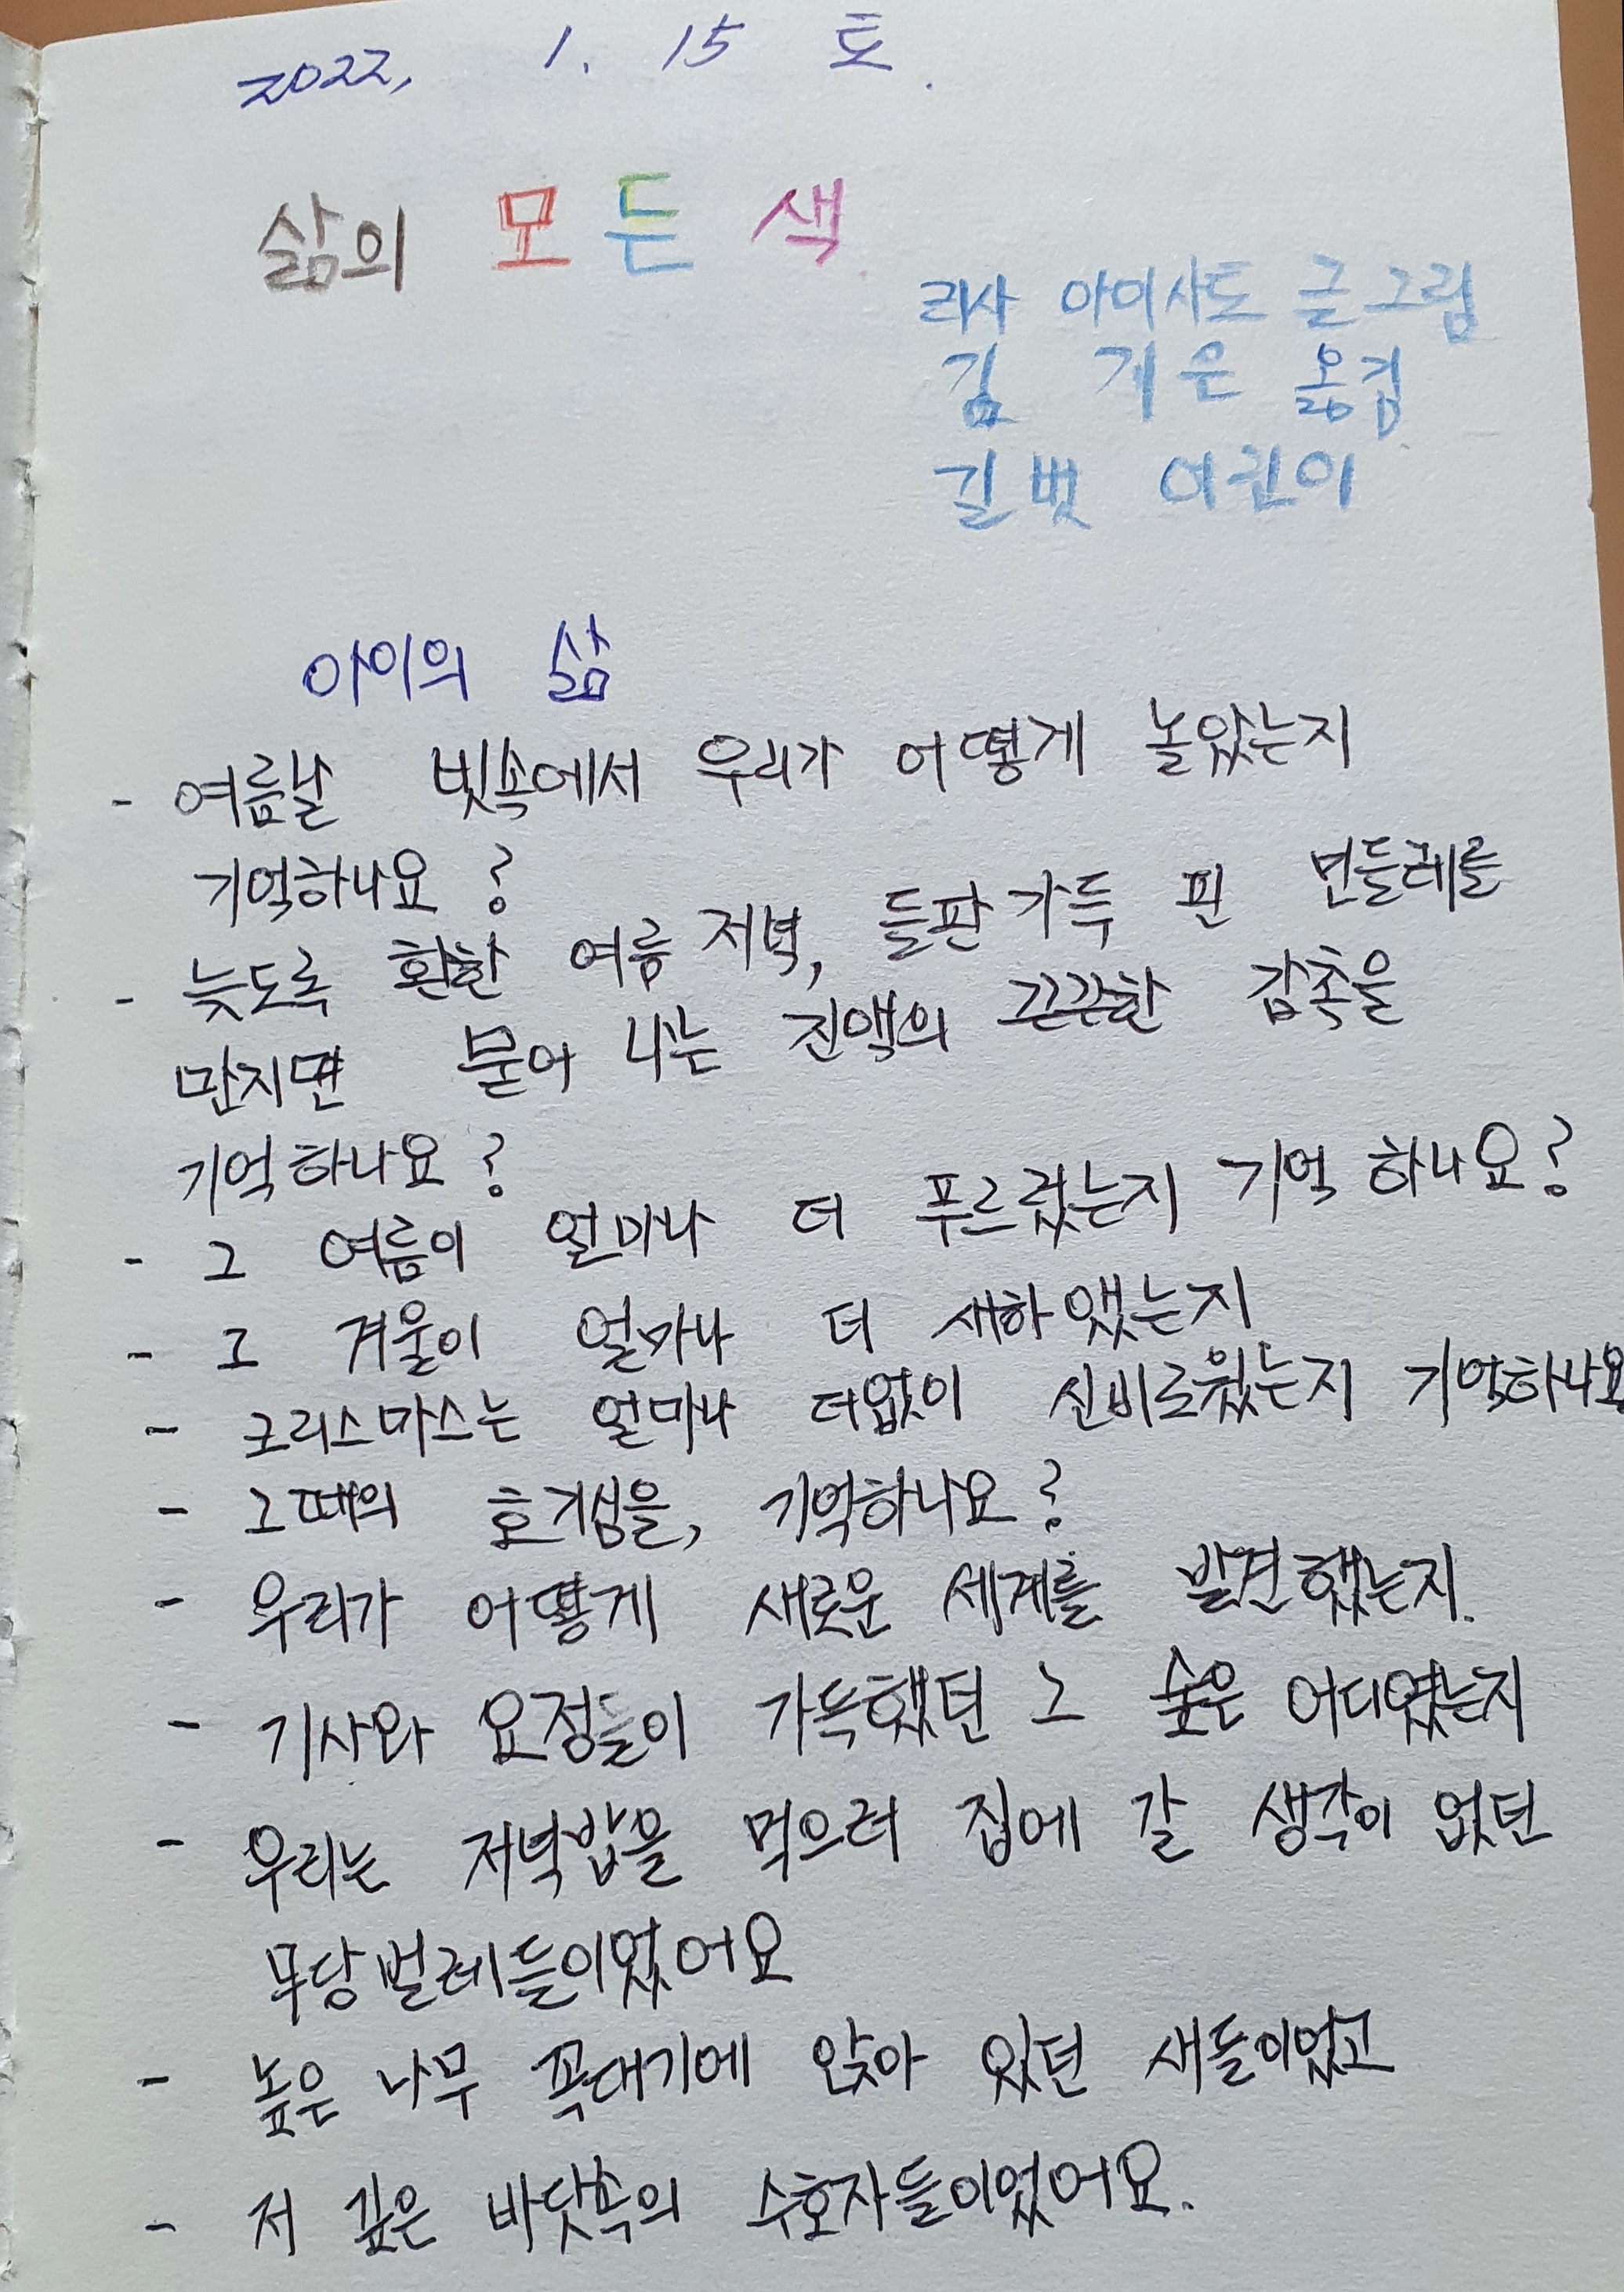 2022. 1. 15 토.
삶의 모든 색
리사 아이사토 글그림
김 지은 옮김
길벗 어린이
아이의 삶
- 여름날 빗속에서 우리가 어떻게 놀았는지
기억하나요?
- 늦도록 환한 여름 저녁, 들판가득 핀 민들레를
만지면 묻어 나는 진액의 끈끈한 감촉을
기억하나요?
- 그 여름이 얼마나 더 푸르렀는지 기억 하나요?
- 그 겨울이 얼마나 더 새하얬는지
- 크리스마스는 얼마나 더없이 신비로웠는지 기억하나요
- 그때의 호기심을, 기억하나요?
- 우리가 어떻게 새로운 세계를 발견했는지.
- 기사와 요정들이 가득했던 그 숲은 어디였는지
- 우리는 저녁밥을 먹으러 집에 갈 생각이 없던
무당벌레들이었어요
- 높은 나무 꼭대기에 앉아 있던 새들이었고
- 저 깊은 바닷속의 수호자들이었어요.